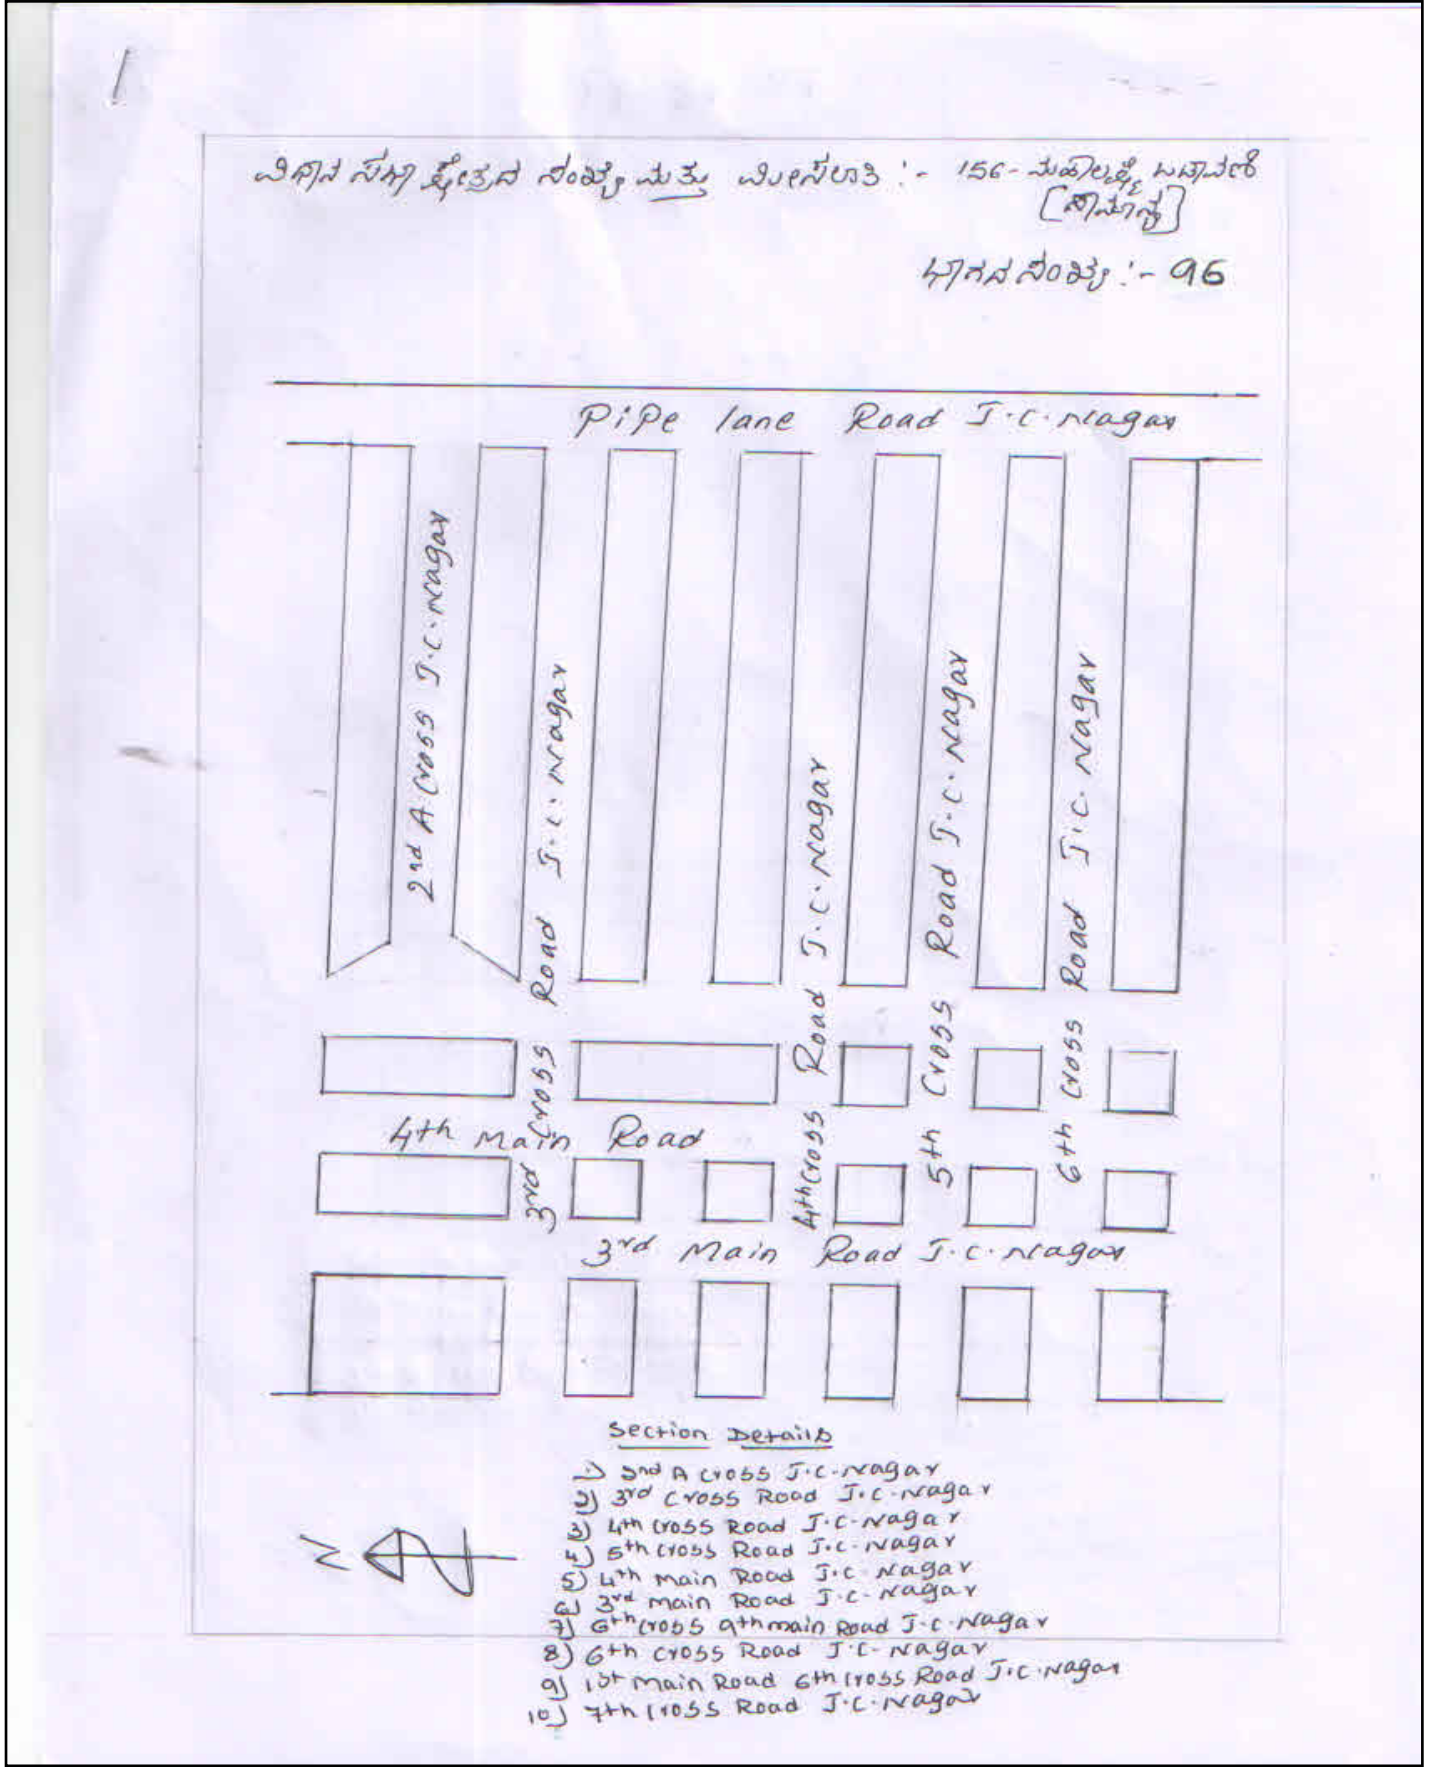 ವಿಧಾನ ಸಭಾ ಕ್ಷೇತ್ರದ ಸಂಖ್ಯೆ ಮತ್ತು ಮೀಸಲಾತಿ :- 156- ಮಹಾಲಕ್ಷ್ಮಿ ಬಡಾವಣೆ
[ಸಾಮಾನ್ಯ]
ಭಾಗದ ಸಂಖ್ಯೆ :- 96
Pipe lane Road J.C.Nagar
2nd A Cross J.C.Nagar
3rd Cross Road J.C.Nagar
4th Cross Road J.C.Nagar
5th Cross Road J.C.Nagar
6th Cross Road J.C.Nagar
4th Main Road
3rd Main Road J.C.Nagar
Section Details
1) 2nd A Cross J.C.Nagar
2) 3rd Cross Road J.C.Nagar
3) 4th Cross Road J.C.Nagar
4) 5th Cross Road J.C.Nagar
5) 4th Main Road J.C.Nagar
6) 3rd Main Road J.C.Nagar
7) 6th Cross 9th main Road J.C.Nagar
8) 6th Cross Road J.C.Nagar
9) 1st Main Road 6th Cross Road J.C.Nagar
10) 7th Cross Road J.C.Nagar
N